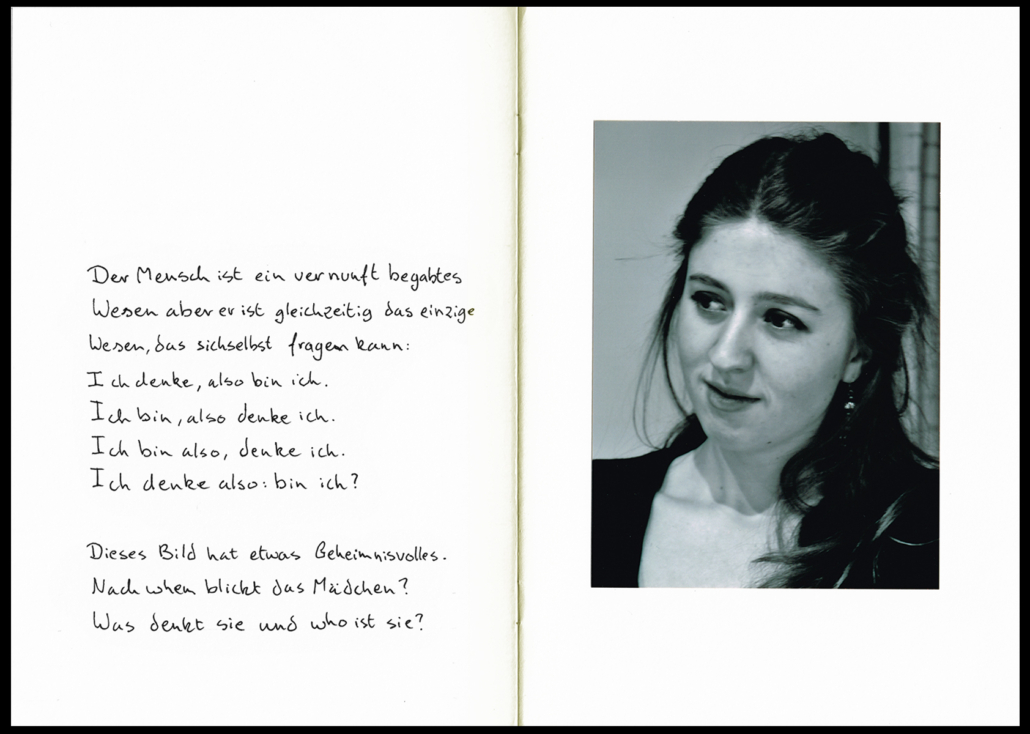 Der Mensch ist ein vernunft begabtes
Wesen aber er ist gleichzeitig das einzige
Wesen, das sichselbst fragen kann:
Ich denke, also bin ich.
Ich bin, also denke ich.
Ich bin also, denke ich.
Ich denke also: bin ich?
Dieses Bild hat etwas Geheimnisvolles.
Nach whem blickt das Mädchen?
Was denkt sie und who ist sie?